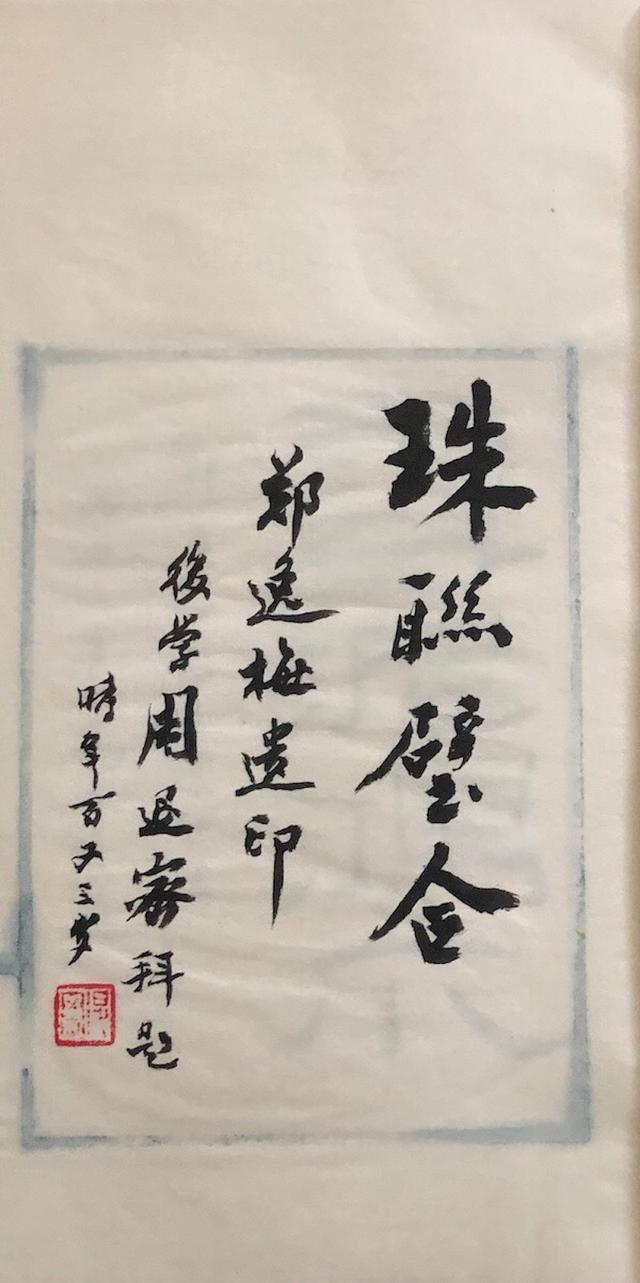 珠聯璧合
鄭逸梅遗印
後学周退密拜題
時年百又三岁